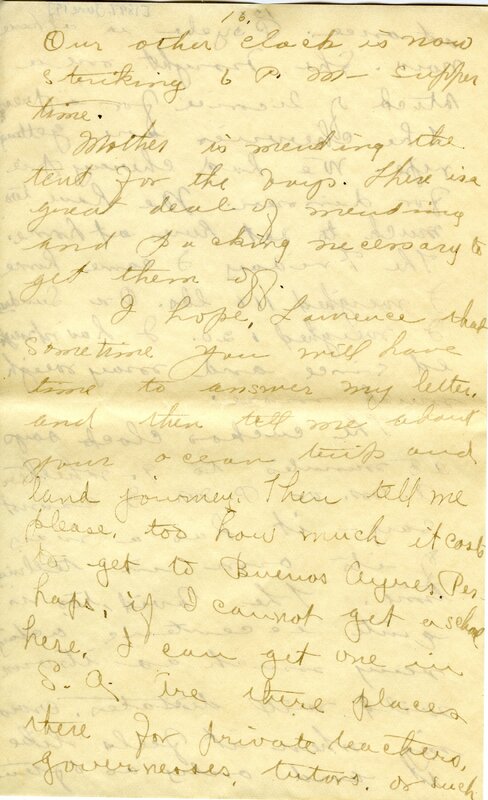 16.
Our other clock is now
striking 6 P. M - supper
time.
Mother is mending the
tent for the boys. There is a
great deal of mending
and packing necessary to
get them off.
I hope, Lawrence that
sometime you will have
time to answer my letter,
and then tell me about
your ocean trip and
land journey. Then tell me
please, too how much it costs
to get to Buenos Ayres. Per-
haps, if I cannot get a school
here, I can get one in
S. A. Are there places
there for private teachers,
governesses, tutors, or such